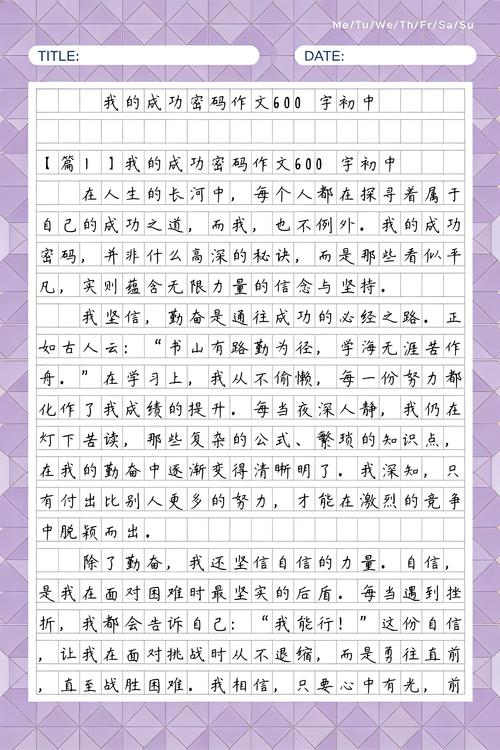 Me/Tu/We/Th/Fr/Sa/Su
TITLE: DATE:
我的成功密码作文600 字初中
【篇1】我的成功密码作文600 字初中
在人生的长河中，每个人都在探寻着属于
自己的成功之道，而我，也不例外。我的成功
密码，并非什么高深的秘诀，而是那些看似平
凡，实则蕴含无限力量的信念与坚持。
我坚信，勤奋是通往成功的必经之路。正
如古人云：“书山有路勤为径，学海无涯苦作
舟。”在学习上，我从不偷懒，每一份努力都
化作了我成绩的提升。每当夜深人静，我仍在
灯下苦读，那些复杂的公式、繁琐的知识点，
在我的勤奋中逐渐变得清晰明了。我深知，只
有付出比别人更多的努力，才能在激烈的竞争
中脱颖而出。
除了勤奋，我还坚信自信的力量。自信，
是我在面对困难时最坚实的后盾。每当遇到挫
折，我都会告诉自己：“我能行！”这份自信
，让我在面对挑战时从不退缩，而是勇往直前
，直至战胜困难。我相信，只要心中有光，前